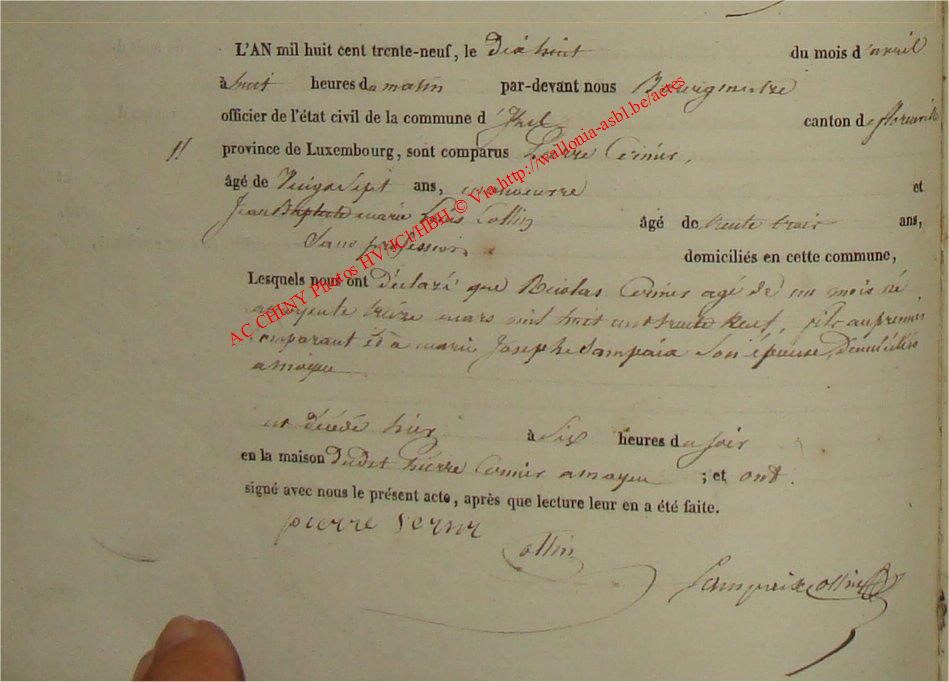 L'AN mil huit cent trente-neuf, le Dix huit du mois d'avril
à huit heures du matin par-devant nous Bourgmestre
officier de l'état civil de la commune d' canton de florenville
11 province de Luxembourg, sont comparus pierre Cernier,
âgé de Vingt Sept ans, manoeuvre et
Jean Baptiste marie Louis Collin âgé de trente trois ans,
Sans profession domiciliés en cette commune,
Lesquels nous ont Déclaré que Nicolas Cernier agé de un mois né
a moyen le mars mil huit cent trente Neuf, fils au premier
comparant et à marie Josephe Sampaix Son épouse Domiciliés
a moyen
est décédé hier à Six heures du soir
en la maison Dudit pierre Cernier a moyen ; et ont
signé avec nous le présent acte, après que lecture leur en a été faite.
pierre Sernir
Collin
Sampaix Collin
AC CHENY Photos HV/JCl/HBH © Via http://wallonia-asbl.be/actes